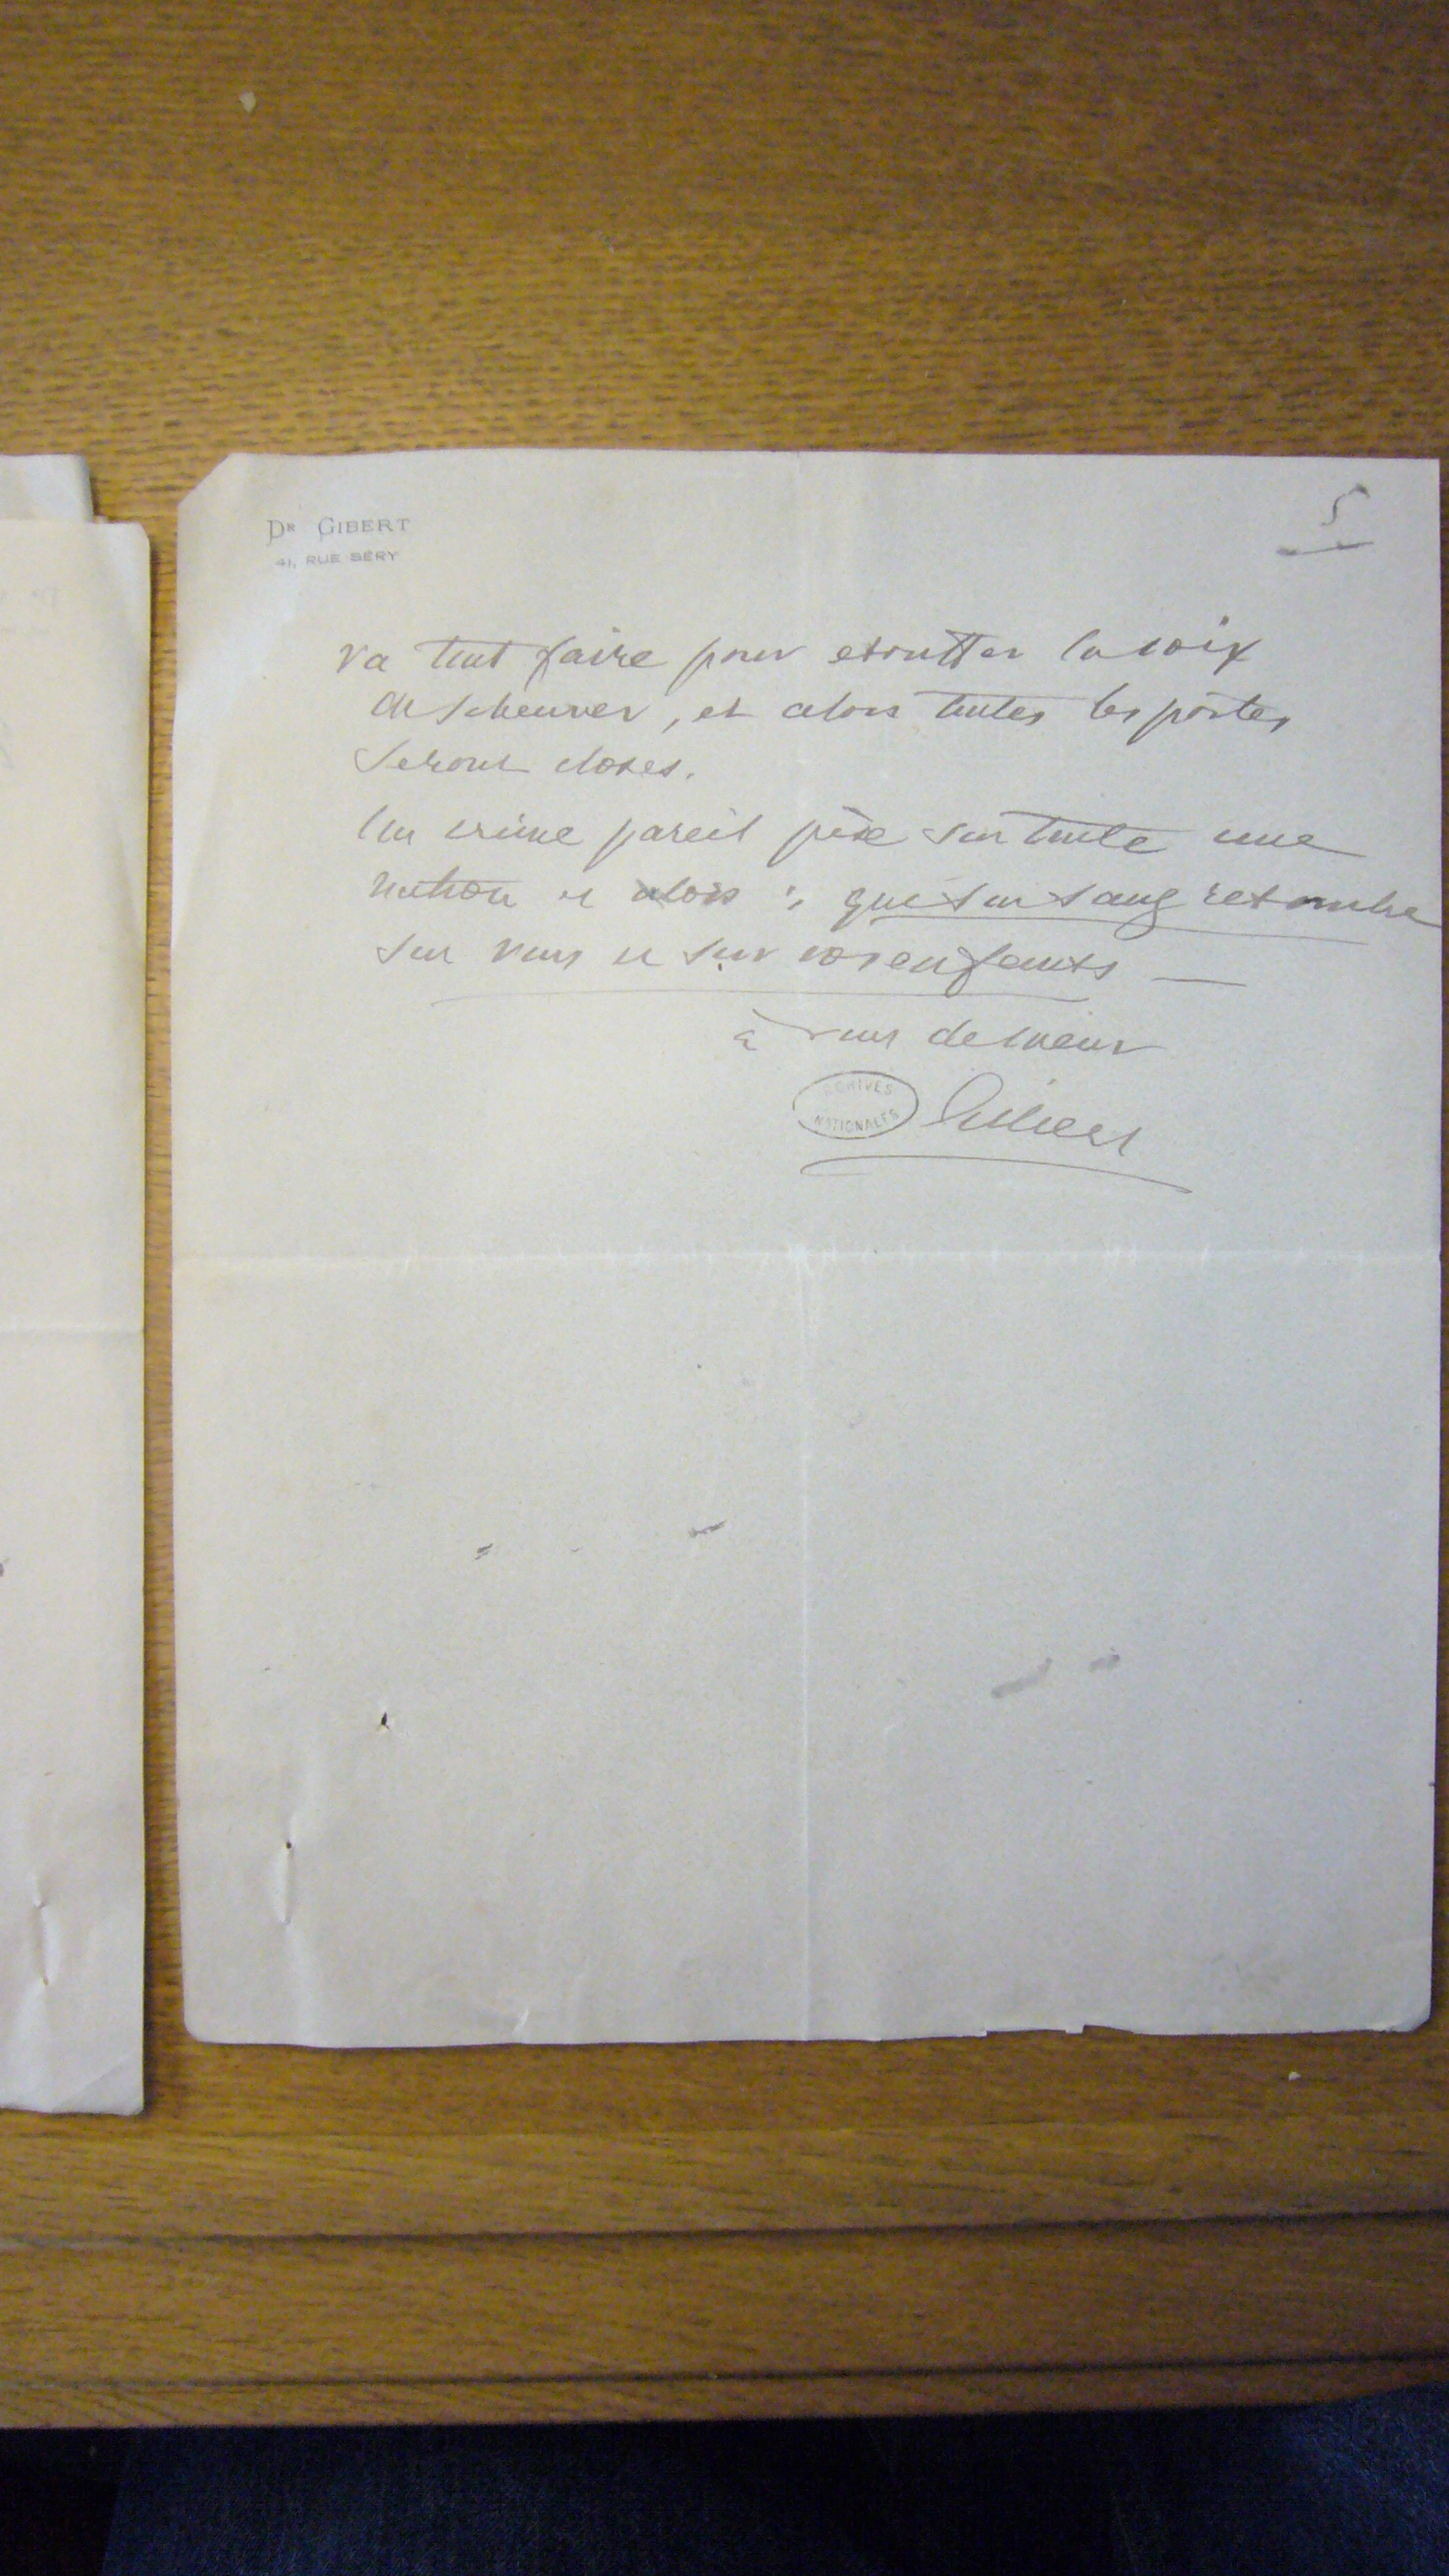 Dr GIBERT
41, RUE SERY
5
va tout faire pour etouffer la voix
de Scheurer, et alors toutes les portes
seront closes.
Un crime pareil pèse sur toute une
nation et alors : que son sang retombe
sur vous et sur vos enfants —
à vous de coeur
ARCHIVES
NATIONALES
Gibert